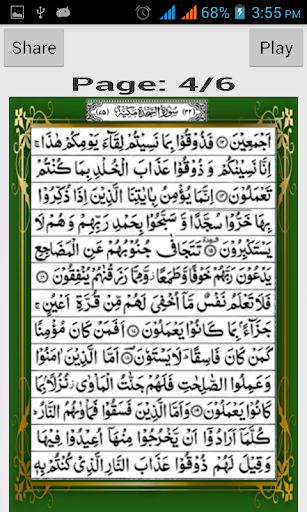 68% 3:55 PM
Share Play
Page: 4/6
سُوْرَةُ السَّجْدَةِ مَكِّيَّةٌ
اَجْمَعِیْنَ ۝ فَذُوْقُوْا بِمَا نَسِیْتُمْ لِقَآءَ یَوْمِكُمْ هٰذَا ۚ
اِنَّا نَسِیْنٰكُمْ وَ ذُوْقُوْا عَذَابَ الْخُلْدِ بِمَا كُنْتُمْ
تَعْمَلُوْنَ ۝ اِنَّمَا یُؤْمِنُ بِاٰیٰتِنَا الَّذِیْنَ اِذَا ذُكِّرُوْا
بِهَا خَرُّوْا سُجَّدًا وَّ سَبَّحُوْا بِحَمْدِ رَبِّهِمْ وَ هُمْ لَا
یَسْتَكْبِرُوْنَ ۝ تَتَجَافٰی جُنُوْبُهُمْ عَنِ الْمَضَاجِعِ
یَدْعُوْنَ رَبَّهُمْ خَوْفًا وَّ طَمَعًا ؗ وَّ مِمَّا رَزَقْنٰهُمْ یُنْفِقُوْنَ ۝
فَلَا تَعْلَمُ نَفْسٌ مَّاۤ اُخْفِیَ لَهُمْ مِّنْ قُرَّةِ اَعْیُنٍ ۚ
جَزَآءًۢ بِمَا كَانُوْا یَعْمَلُوْنَ ۝ اَفَمَنْ كَانَ مُؤْمِنًا
كَمَنْ كَانَ فَاسِقًا ؔؕ لَا یَسْتَوٗنَ ۝ اَمَّا الَّذِیْنَ اٰمَنُوْا
وَ عَمِلُوا الصّٰلِحٰتِ فَلَهُمْ جَنّٰتُ الْمَاْوٰی ؗ نُزُلًۢا بِمَا
كَانُوْا یَعْمَلُوْنَ ۝ وَ اَمَّا الَّذِیْنَ فَسَقُوْا فَمَاْوٰىهُمُ النَّارُ ؕ
كُلَّمَاۤ اَرَادُوْۤا اَنْ یَّخْرُجُوْا مِنْهَاۤ اُعِیْدُوْا فِیْهَا
وَ قِیْلَ لَهُمْ ذُوْقُوْا عَذَابَ النَّارِ الَّذِیْ كُنْتُمْ بِهٖ